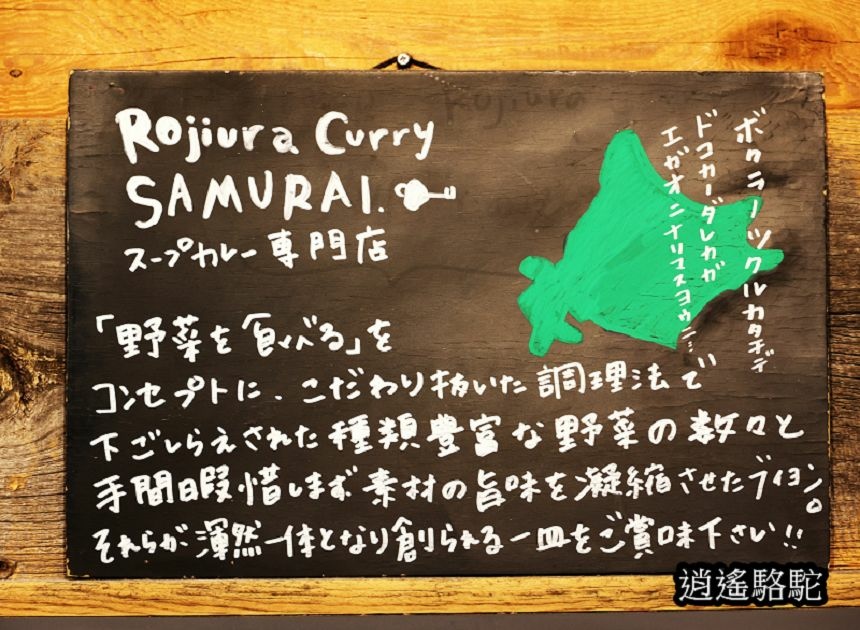 Rojiura
Rojiura Curry
SAMURAI.
スープカレー専門店
ボクラノツクルカタチデ
ドコカノダレカガ
エガオニナリマスヨウニ…
「野菜を食べる」を
コンセプトに、こだわり抜いた調理法で
下ごしらえされた種類豊富な野菜の数々と
手間暇惜しまず素材の旨味を凝縮させたブイヨン。
それらが渾然一体となり創られる一皿をご賞味下さい!!
逍遙駱駝